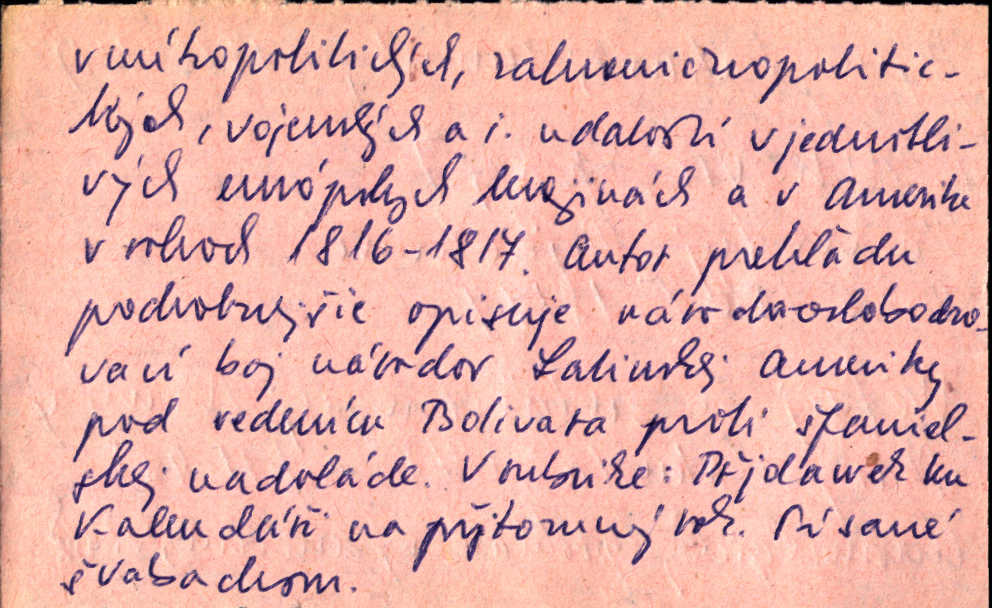 vnútropolitických, zahraničnopolitic-
kých, vojenských a i. udalostí v jednotli-
vých európskych krajinách a v Amerike
v rokoch 1816-1817. Autor prehľadu
podrobnejšie opisuje národnooslobodzo-
vací boj národov Latinskej Ameriky
pod vedením Bolivara proti španiel-
skej nadvláde. V rubrike: Přjdawek ku
Kalendáři na přjtomný rok. Písané
švabachom.